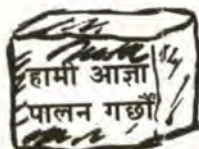 हामी आज्ञा
पालन गर्छौं